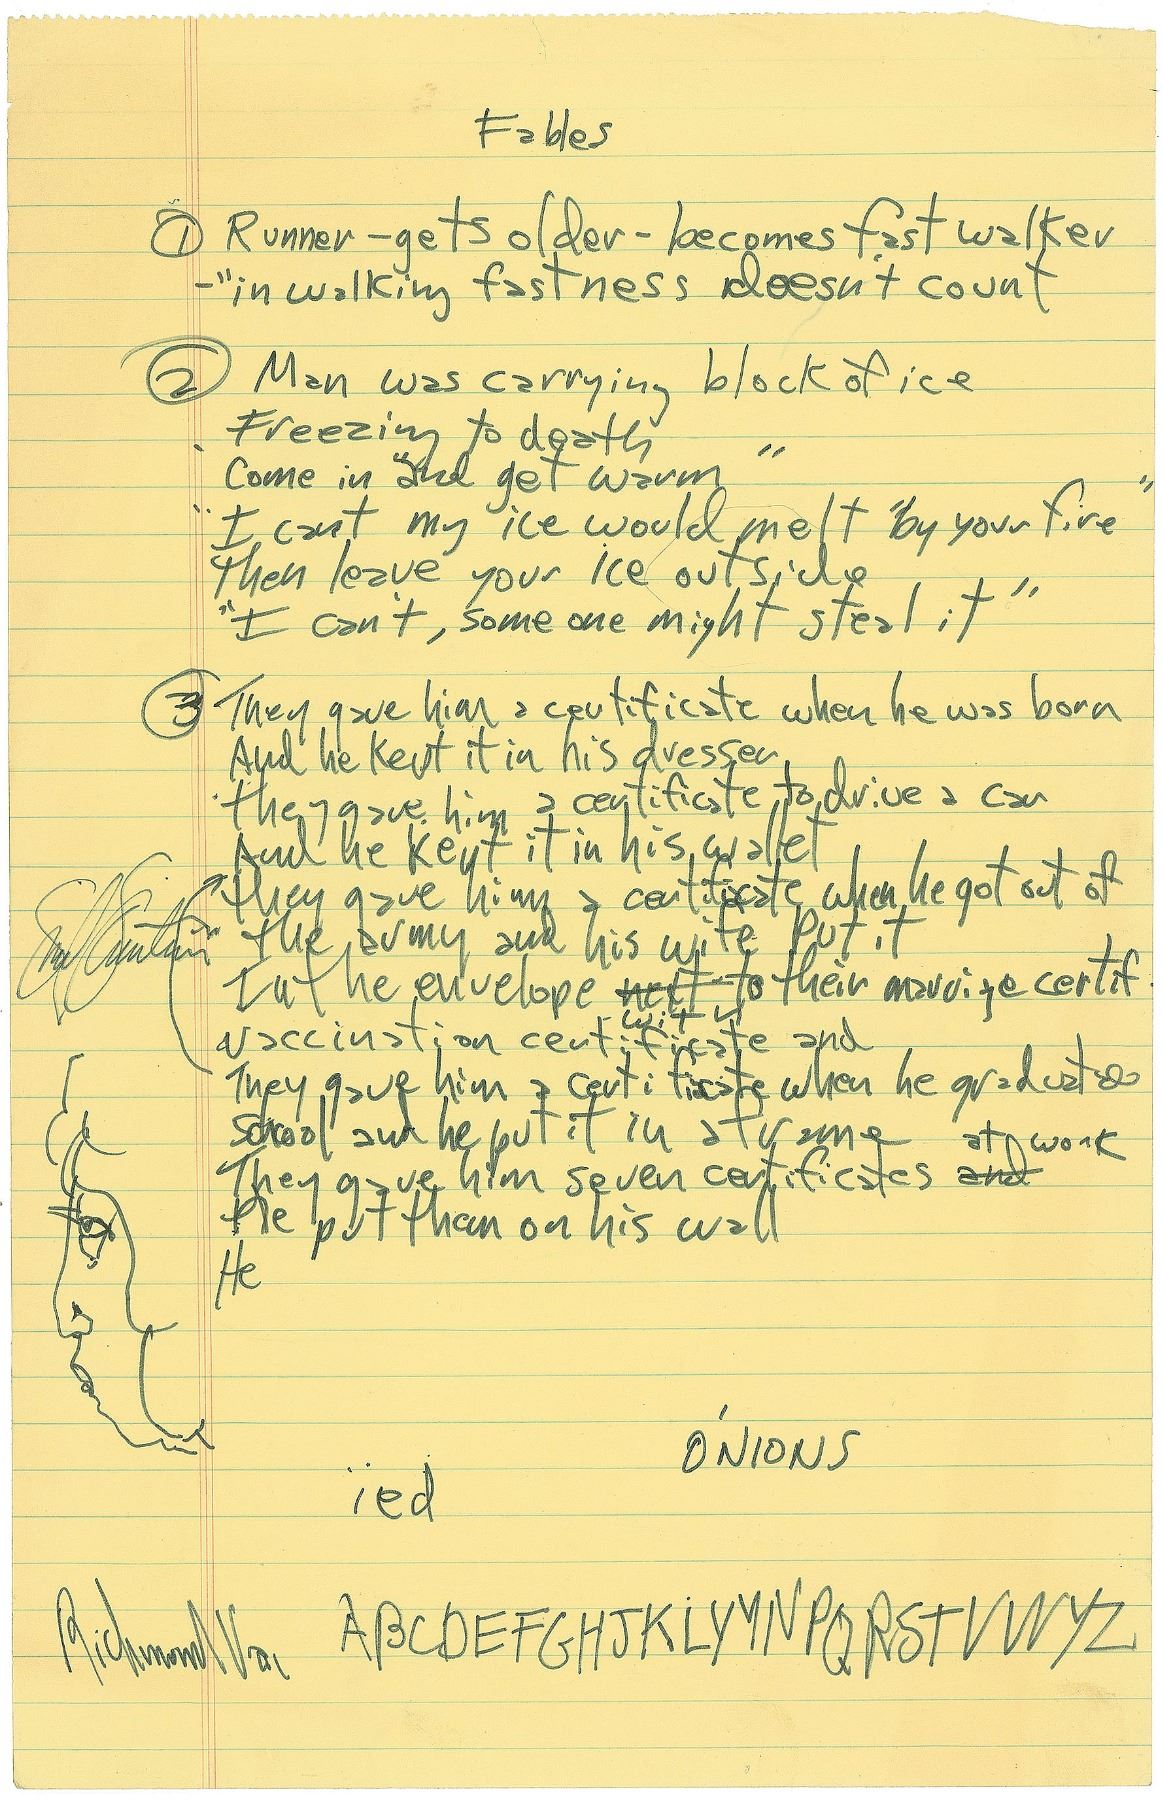 Fables
① Runner - gets older - becomes fast walker
- "in walking fastness doesn't count
② Man was carrying block of ice
Freezing to death
Come in "and get warm"
"I cant my ice would melt "by your fire"
Then leave your ice outside
"I can't, someone might steal it"
③ They gave him a certificate when he was born
And he kept it in his dresser
They gave him a certificate to drive a car
And he kept it in his wallet
They gave him a certificate when he got out of
the army and his wife put it
In the envelope next to their marrige certif.
with
vaccination certificate and
They gave him a certificate when he graduates
school and he put it in a frame
at work
They gave him seven certificates and
He put them on his wall
He
ONIONS
ied
Richmond Va,
ABCDEFGHJKLYMNPQRSTVWYZ